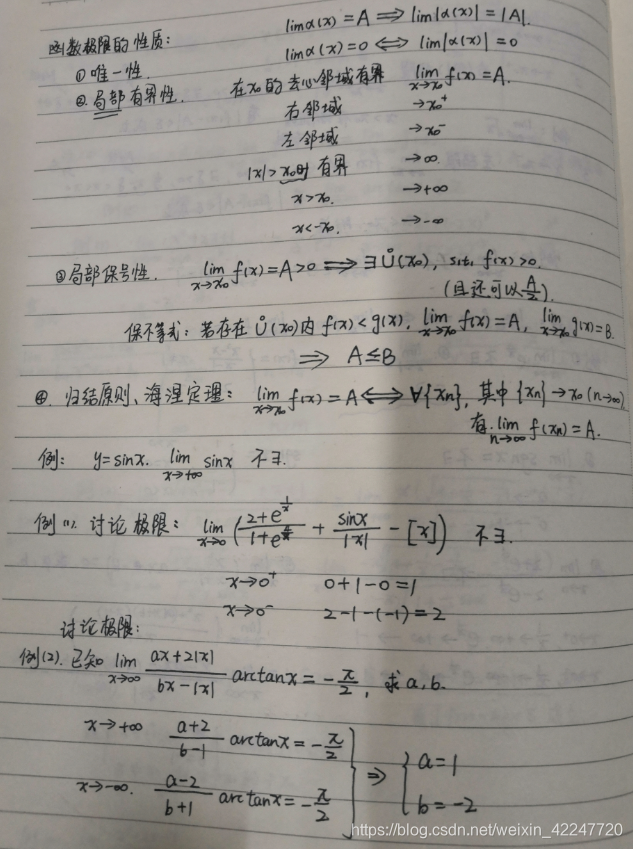 函数极限的性质: limα(x)=A ⟹ lim|α(x)|=|A|.
limα(x)=0 ⟺ lim|α(x)|=0
①唯一性.
②局部有界性. 在x₀的去心邻域有界 lim_{x→x₀} f(x)=A.
右邻域 →x₀⁺
左邻域 →x₀⁻
|x|>x₀时有界 →∞.
x>x₀. →+∞
x<-x₀. →-∞
③局部保号性. lim_{x→x₀} f(x)=A>0 ⟹ ∃Ů(x₀), s.t. f(x)>0.
(且还可以A/2).
保不等式: 若存在Ů(x₀)内 f(x)<g(x), lim_{x→x₀} f(x)=A, lim_{x→x₀} g(x)=B.
⟹ A≤B
④. 归结原则、海涅定理: lim_{x→x₀} f(x)=A ⟺ ∀{xn}, 其中{xn}→x₀(n→∞)
有. lim_{n→∞} f(xn)=A.
例: y=sinx. lim_{x→+∞} sinx 不∃.
例(1). 讨论极限: lim_{x→0} ( (2+e^{1/x})/(1+e^{4/x}) + sinx/|x| - [x] ) 不∃.
x→0⁺ 0+1-0=1
x→0⁻ 2-1-(-1)=2
讨论极限:
例(2). 已知 lim_{x→∞} (ax+2|x|)/(bx-|x|) arctanx = -π/2, 求a,b.
x→+∞ (a+2)/(b-1) arctanx = -π/2
x→-∞. (a-2)/(b+1) arctanx = -π/2 } ⟹ { a=1
b=-2
https://blog.csdn.net/weixin_42247720